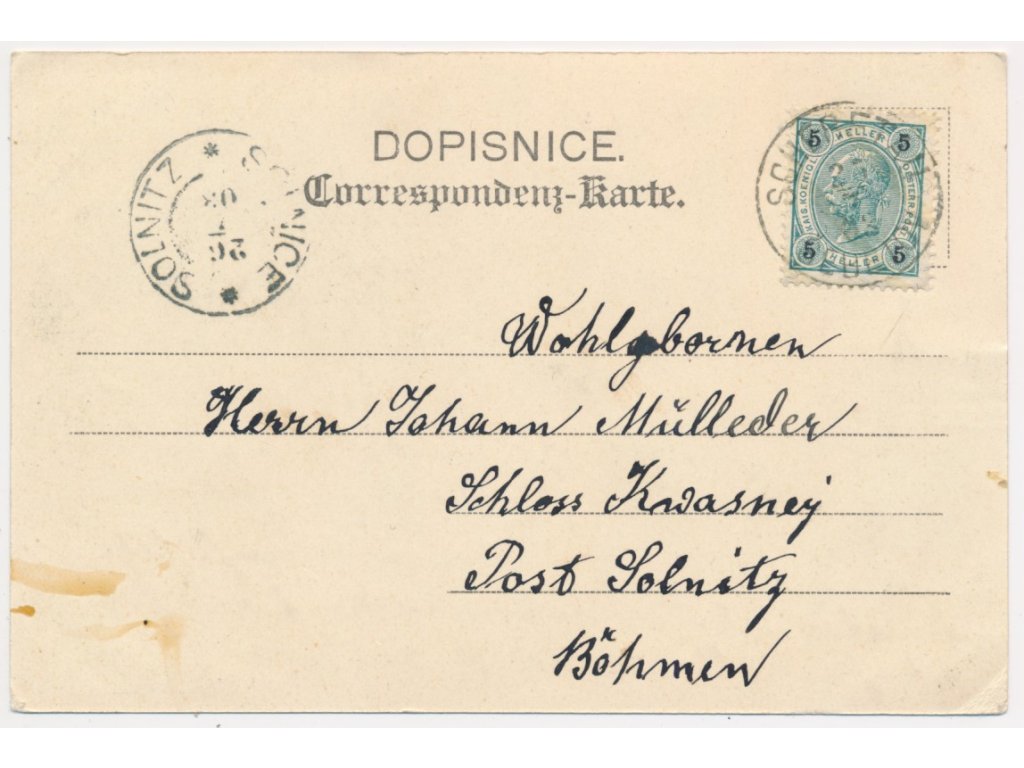 DOPISNICE.
Correspondenz-Karte.
SOLNITZ * SOLNICE *
26
03
5 HELLER 5
KAIS. KOENIGL. OESTERR. POST
5 HELLER 5
Wohlgebornen
Herrn Johann Mülleder
Schloss Kwasney
Post Solnitz
Böhmen